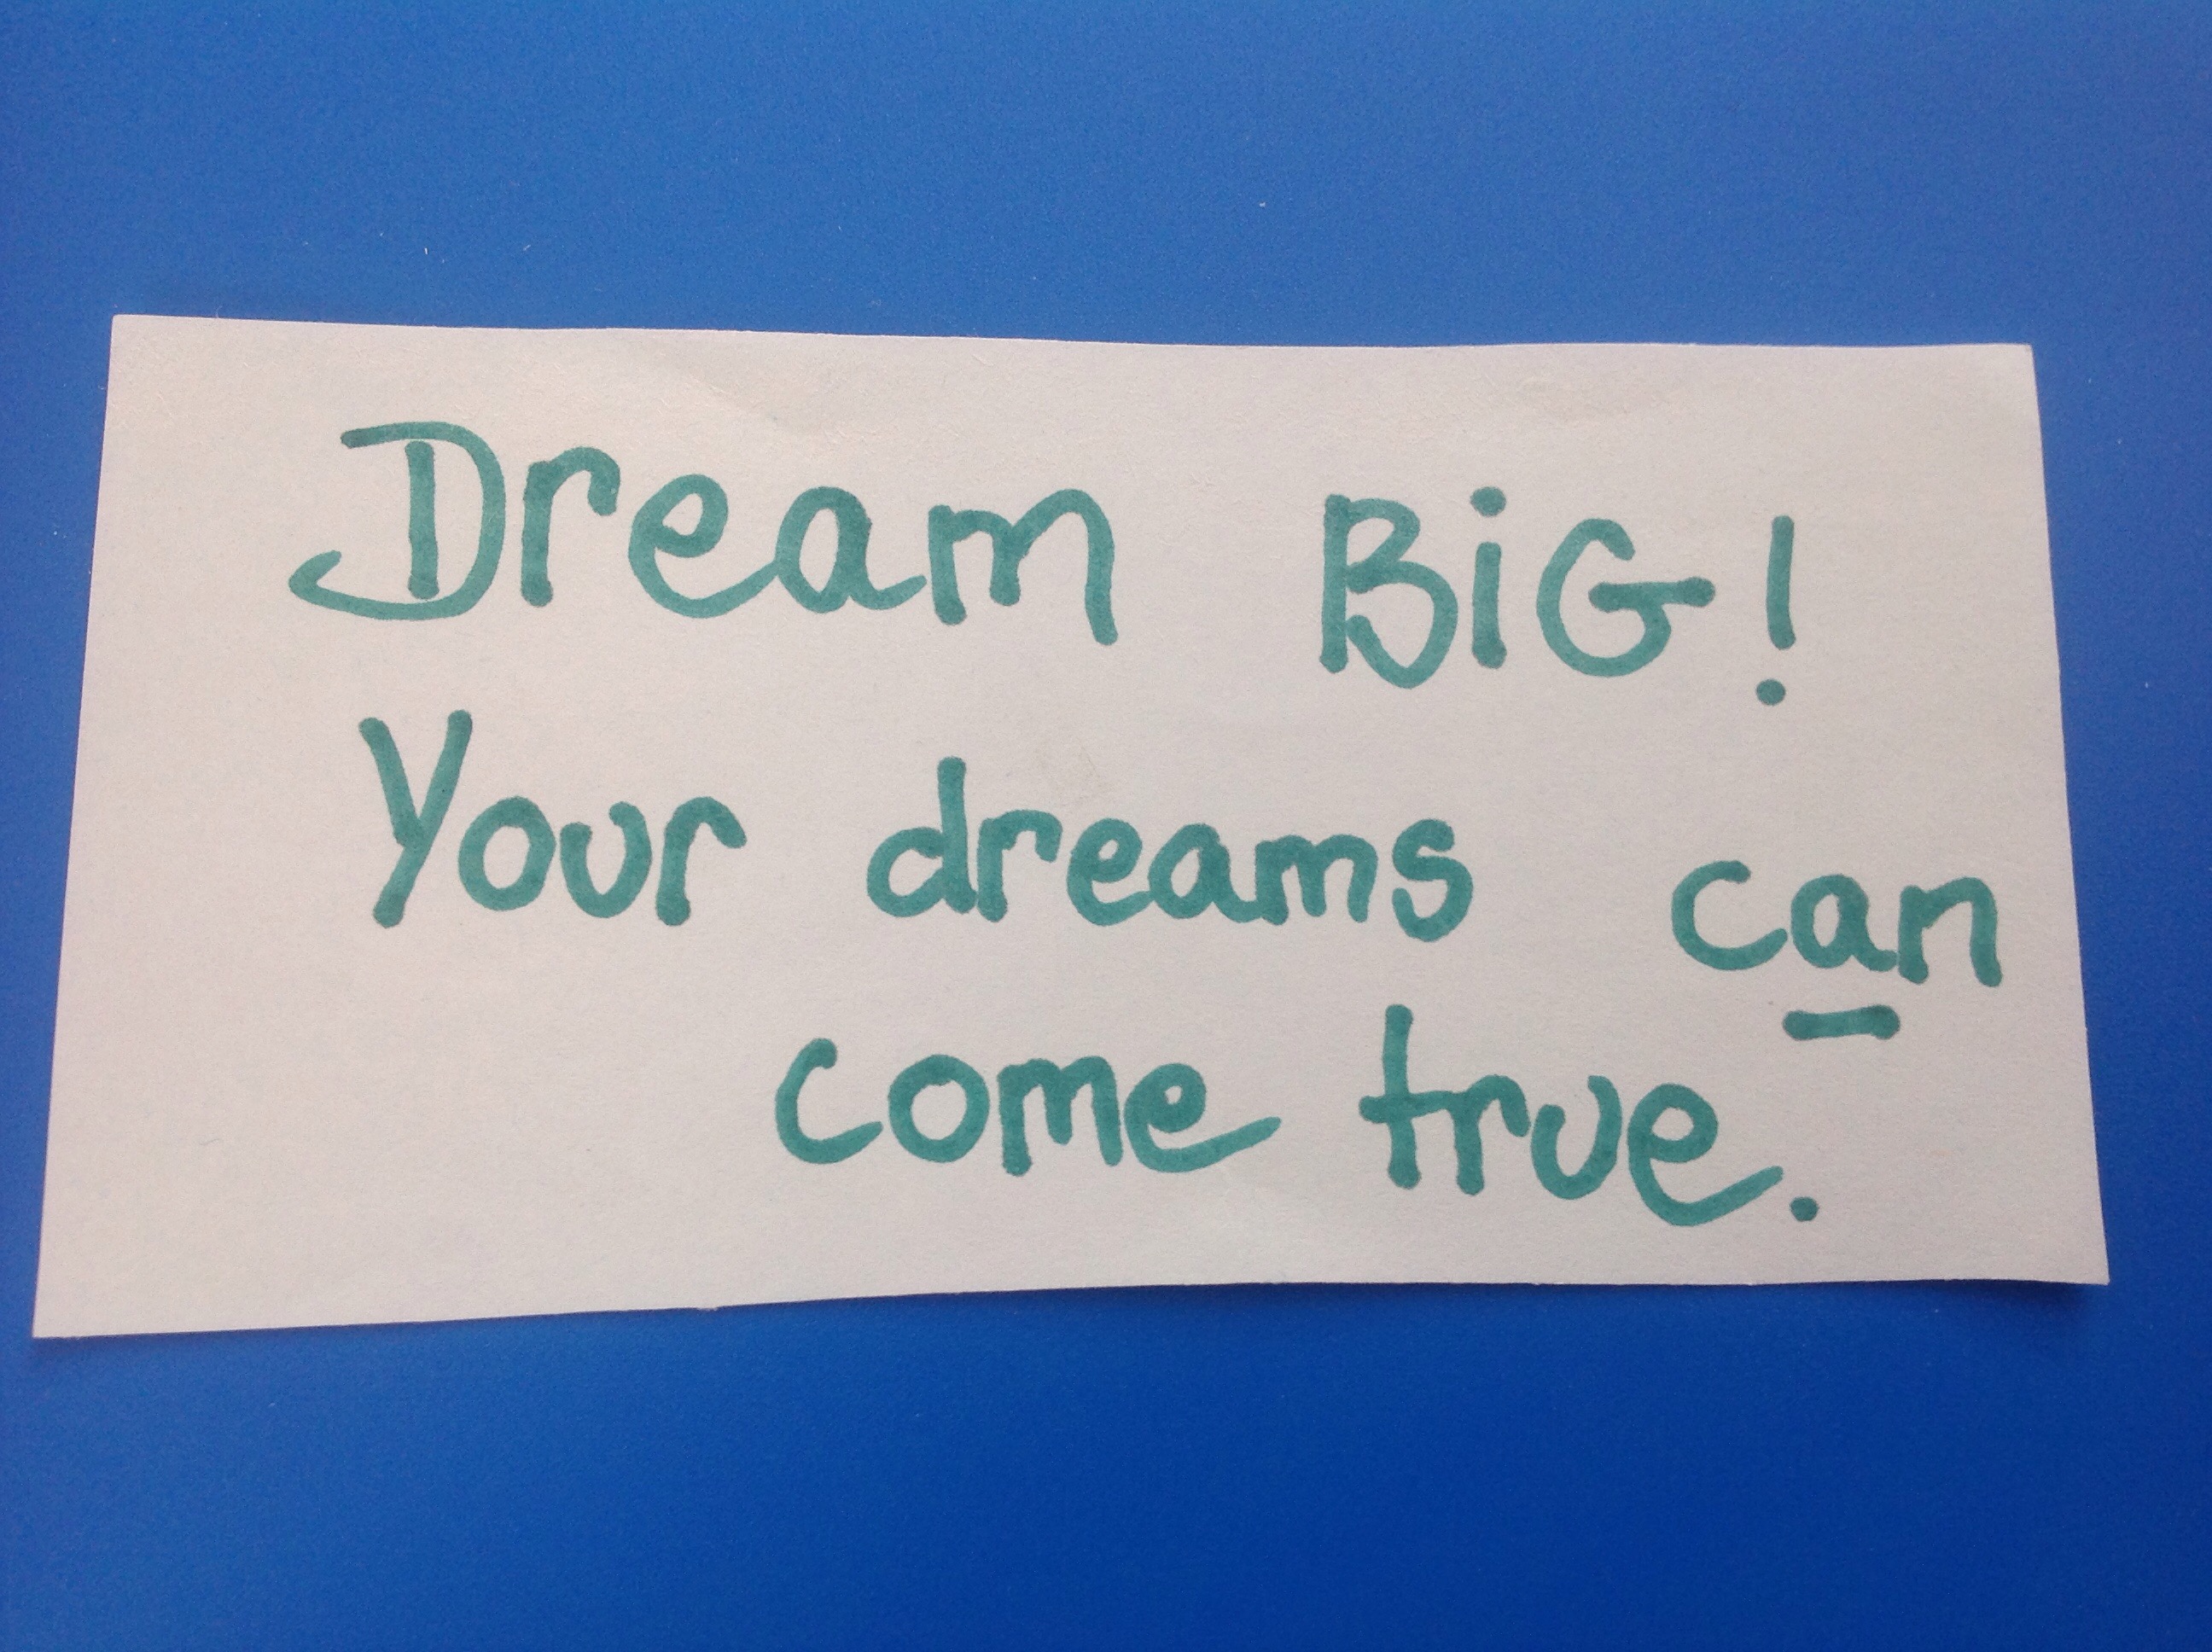 Dream BiG!
Your dreams can
come true.